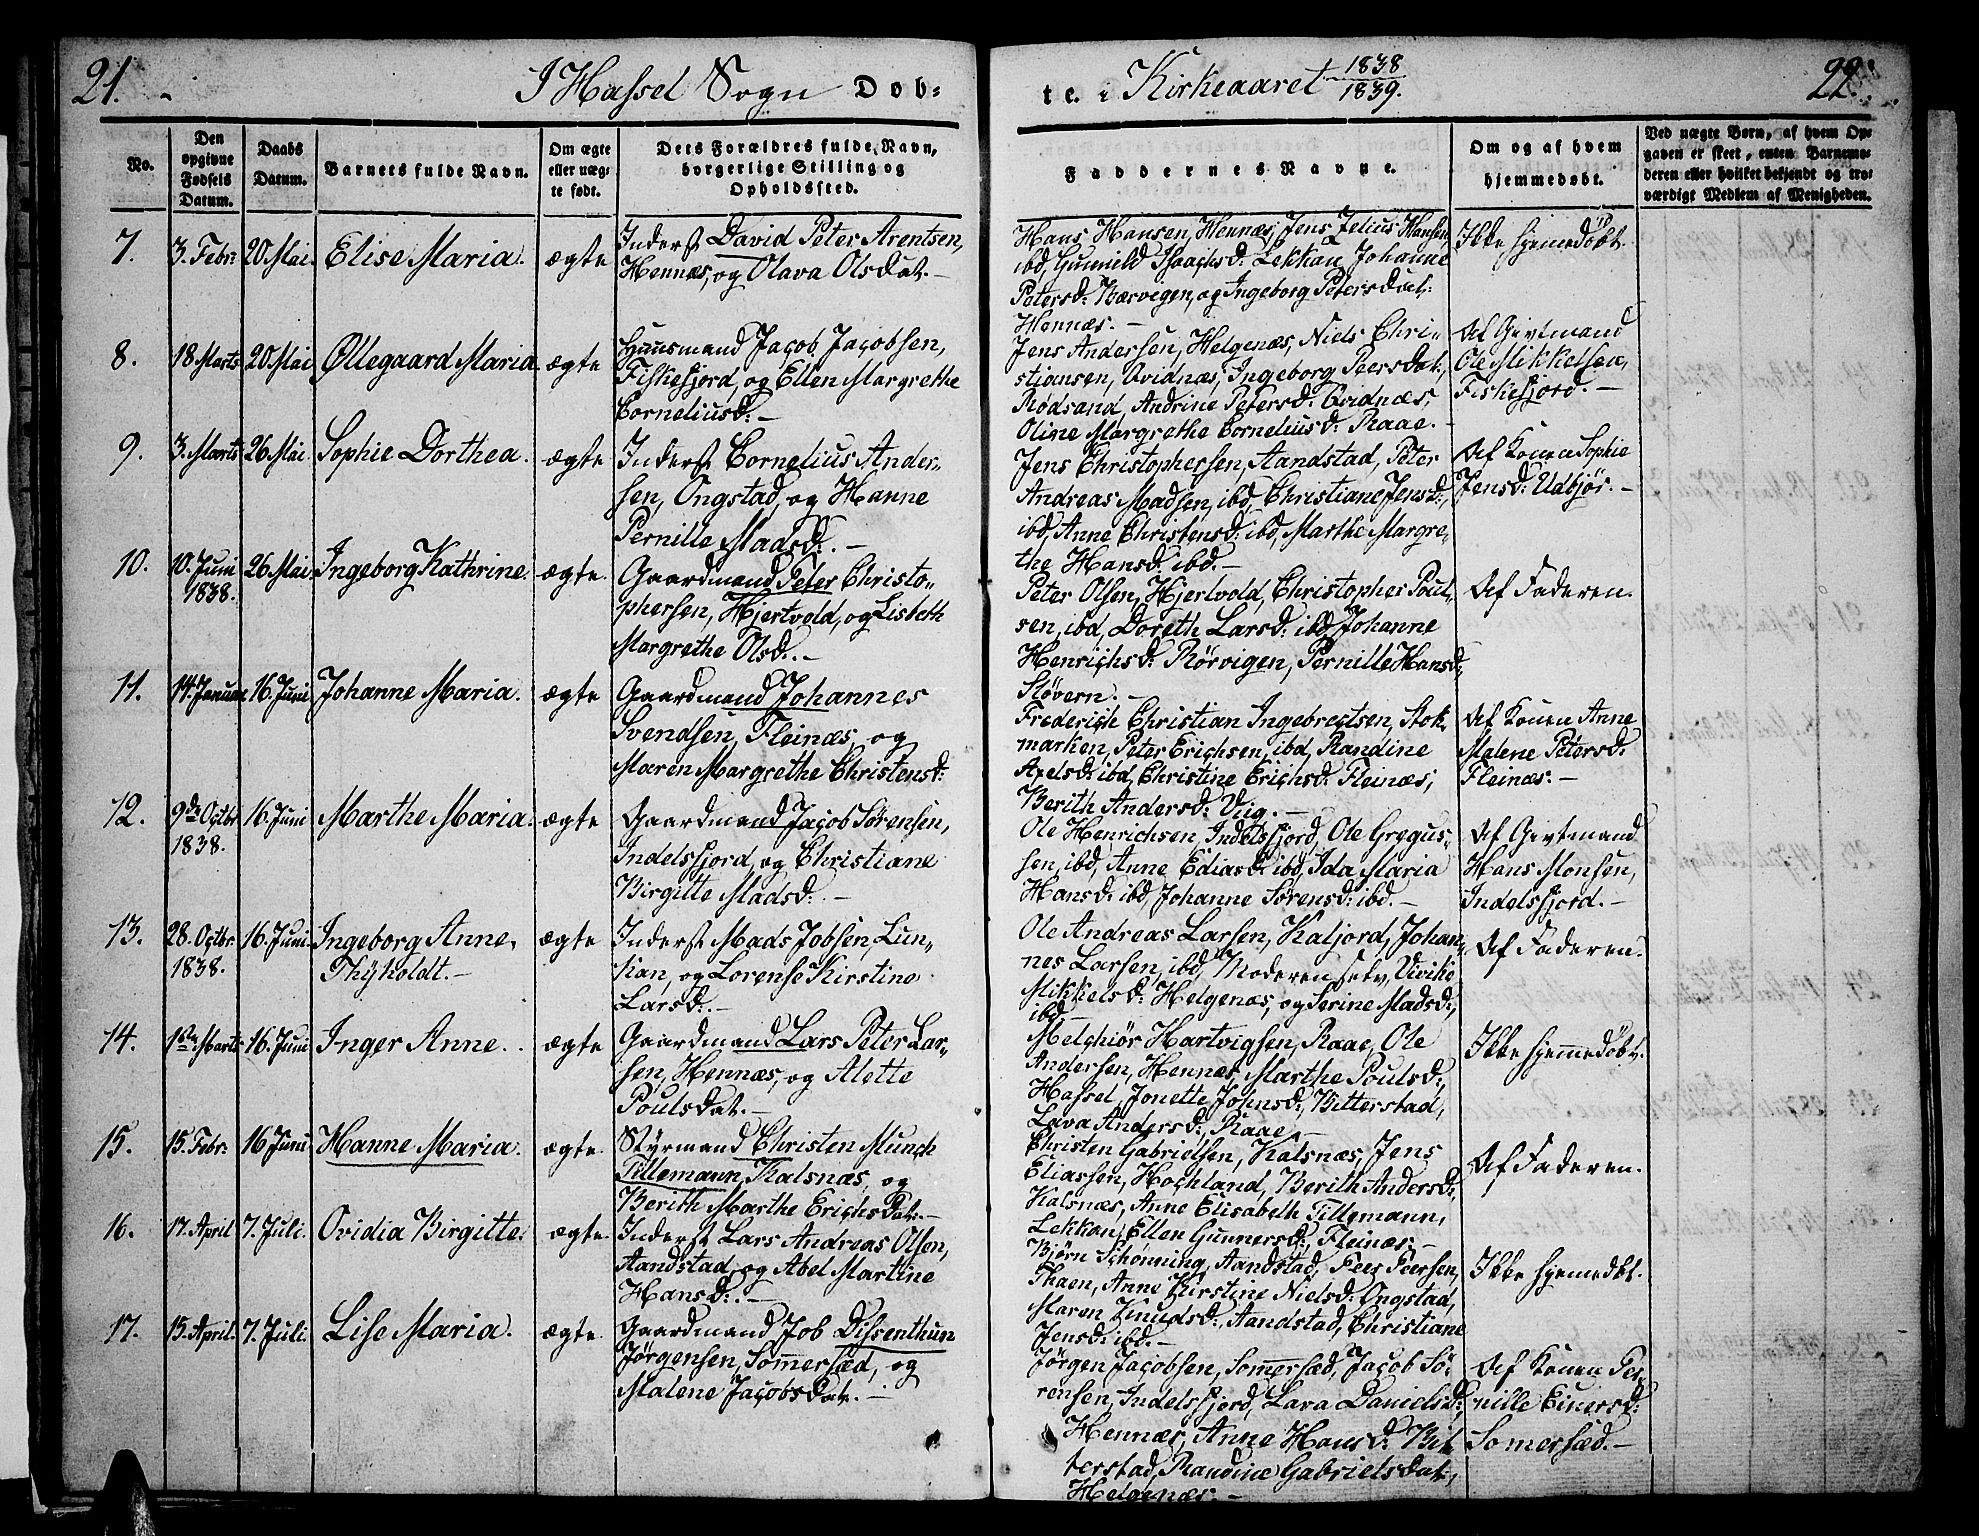 21.
I Hassel Sogn Dob-
te. i Kirkeaaret 1838
1839.
22.
No.
Den
opgivne
Fødsels
Datum.
Daabs
Datum.
Barnets fulde Navn.
Om ægte
eller uæg-
te født.
Dets Forældres fulde Navn,
borgerlige Stilling og
Opholdssted.
Faddernes Navne.
Om og af hvem
hjemmedøbt.
Ved uægte Børn, af hvem Op-
gaven er skeet, enten Barnemo-
deren eller hvilket bekjendt og tro-
værdigt Medlem af Menigheden.
7.
3. Febr:
20. Mai.
Elise Maria.
ægte
Inderst David Peter Arentsen,
Hennæs, og Olava Olsdat. –
Hans Hansen, Hennæs, Jens Jelius Hansen
ibd, Gunnild Isaachsd: Lekkan, Johanne
Petersd: Kærvigen, og Ingeborg Petersdat:
Hennæs. –
Ikke hjemedøbt.
8.
18 Marts
20. Mai
Øllegaard Maria.
ægte
Huusmand Jacob Jacobsen,
Fiskefjord, og Ellen Margrethe
Corneliusd: –
Jens Andersen, Helgenæs, Niels Chri-
stiansen, Qvidnæs, Ingeborg Peersdat:,
Rødsand, Andrine Petersd: Qvidnæs,
Oline Margrethe Corneliusd: Raae. –
Af Givtmand
Ole Mikkelsen,
Fiskefjord. –
9.
3. Marts
26 Mai.
Sophie Dorthea.
ægte
Inderst Cornelius Ander-
sen, Ongstad, og Hanne
Pernille Madsd: –
Jens Christophersen, Aandstad, Peter
Andreas Madsen, ibd, Christiane Jensd:,
ibd, Anne Christensd: ibd, Marthe Margre-
the Hansd: ibd. –
Af Konen Sophie
Jensd: Udbjør. –
10.
10. Juni
1838.
26 Mai
Ingeborg Kathrine.
ægte.
Gaardmand Peter Christo-
phersen, Hjertvold, og Lisbeth
Margrethe Olsd:. –
Peter Olsen, Hjertvold, Christopher Poul-
sen, ibd, Doreth Larsd: ibd, Johanne
Henrichsd: Rørvigen, Pernille Hansd:
Støvern. –
Af Faderen.
11.
14. Januar
16 Juni
Johanne Maria.
ægte
Gaardmand Johannes
Svendsen, Fleinæs, og
Maren Margrethe Christensd:
Frederich Christian Ingebrectsen, Stok-
marken, Peter Erichsen, ibd, Randine
Axelsd: ibd, Christine Erichsd: Fleinæs,
Berith Andersd: Viig. –
Af Konen Anne
Malene Petersd:
Fleinæs. –
12.
9de Octbr
1838.
16. Juni
Marthe Maria.
ægte
Gaardmand Jacob Sørensen,
Indelsfjord, og Christiane
Birgitte Madsd:. –
Ole Henrichsen, Indelsfjord, Ole Gregus-
sen, ibd, Anne Ediasd: ibd, Ida Maria
Hansd: ibd, Johanne Sørensd: ibd. –
Af Givtmand
Hans Monsen,
Indelsfjord. –
13.
28. Octbr.
1838.
16. Juni.
Ingeborg Anne,
Thÿholdt. –
ægte
Inderst Mads Jobsen, Lun-
kan, og Lorense Kirstine
Larsd:. –
Ole Andreas Larsen, Kaljord, Johan-
nes Larsen, ibd, Moderen selv, Vivike
Mikkelsd: Helgenæs, og Serine Madsd:,
ibd. –
Af Faderen.
14.
Marts
16. Juni
Inger Anne.
ægte
Gaardmand Lars Peter Lar-
sen, Hennæs, og Alette
Poulsdat. –
Melchiør Hartvigsen, Raae, Ole
Andersen, Hennæs, Marthe Poulsd:,
Hassel, Jonette Johnsd:, Bitterstad,
Lava Andersd:, Raae. –
Ikke hjemmedøbt.
15.
15. Febr:
16 Juni
Hanne Maria.
ægte.
Styrmand Christen Munch
Tillemann, Kalsnæs, og
Berith Marthe Erichsdat: –
Christen Gabrielsen, Kalsnæs, Jens
Eliassen, Hochland, Berith Andersd:,
Kalsnæs, Anne Elisabeth Tillemann,
Lekkan, Ellen Gunnersd:, Fleinæs. –
Af Faderen.
16.
17. April
7. Juli.
Ovidia Birgitte.
ægte.
Inderst Lars Andreas Olsen,
Aandstad, og Abel Martine
Hansd:. –
Bjørn Schønning, Aandstad, Peer Peersen,
Thaen, Anne Kirstine Nielsd: Ongstad,
Maren Knudsd:, Aandstad, Christiane
Jensd: ibd. –
Ikke hjemedøbt.
17.
15. April.
7. Juli.
Lise Maria.
ægte.
Gaardmand Job Dissenthun
Jørgensen, Sommersæd, og
Malene Jacobsdat. –
Jørgen Jacobsen, Sommersæd, Jacob Sø-
rensen, Indelsfjord, Lava Danielsd:,
Hennæs, Anne Hansd: Bit-
terstad, Randine Gabrielsdat:,
Helgenæs. –
Af Konen Per-
nille Einersd:
Somersæd. –